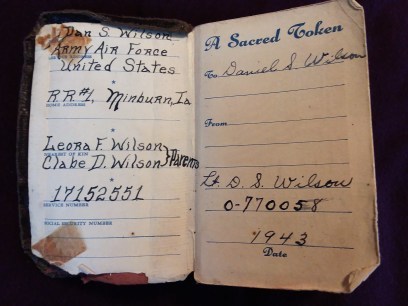 Dan S. Wilson
Army Air Force
United States
R.R.#1, Minburn, Ia
HOME ADDRESS
Leora F. Wilson
Clabe D. Wilson } Parents
NEAREST OF KIN
17152551
SERVICE NUMBER
SOCIAL SECURITY NUMBER
A Sacred Token
To Daniel S. Wilson
From
Lt. D. S. Wilson
O-770058
1943
Date